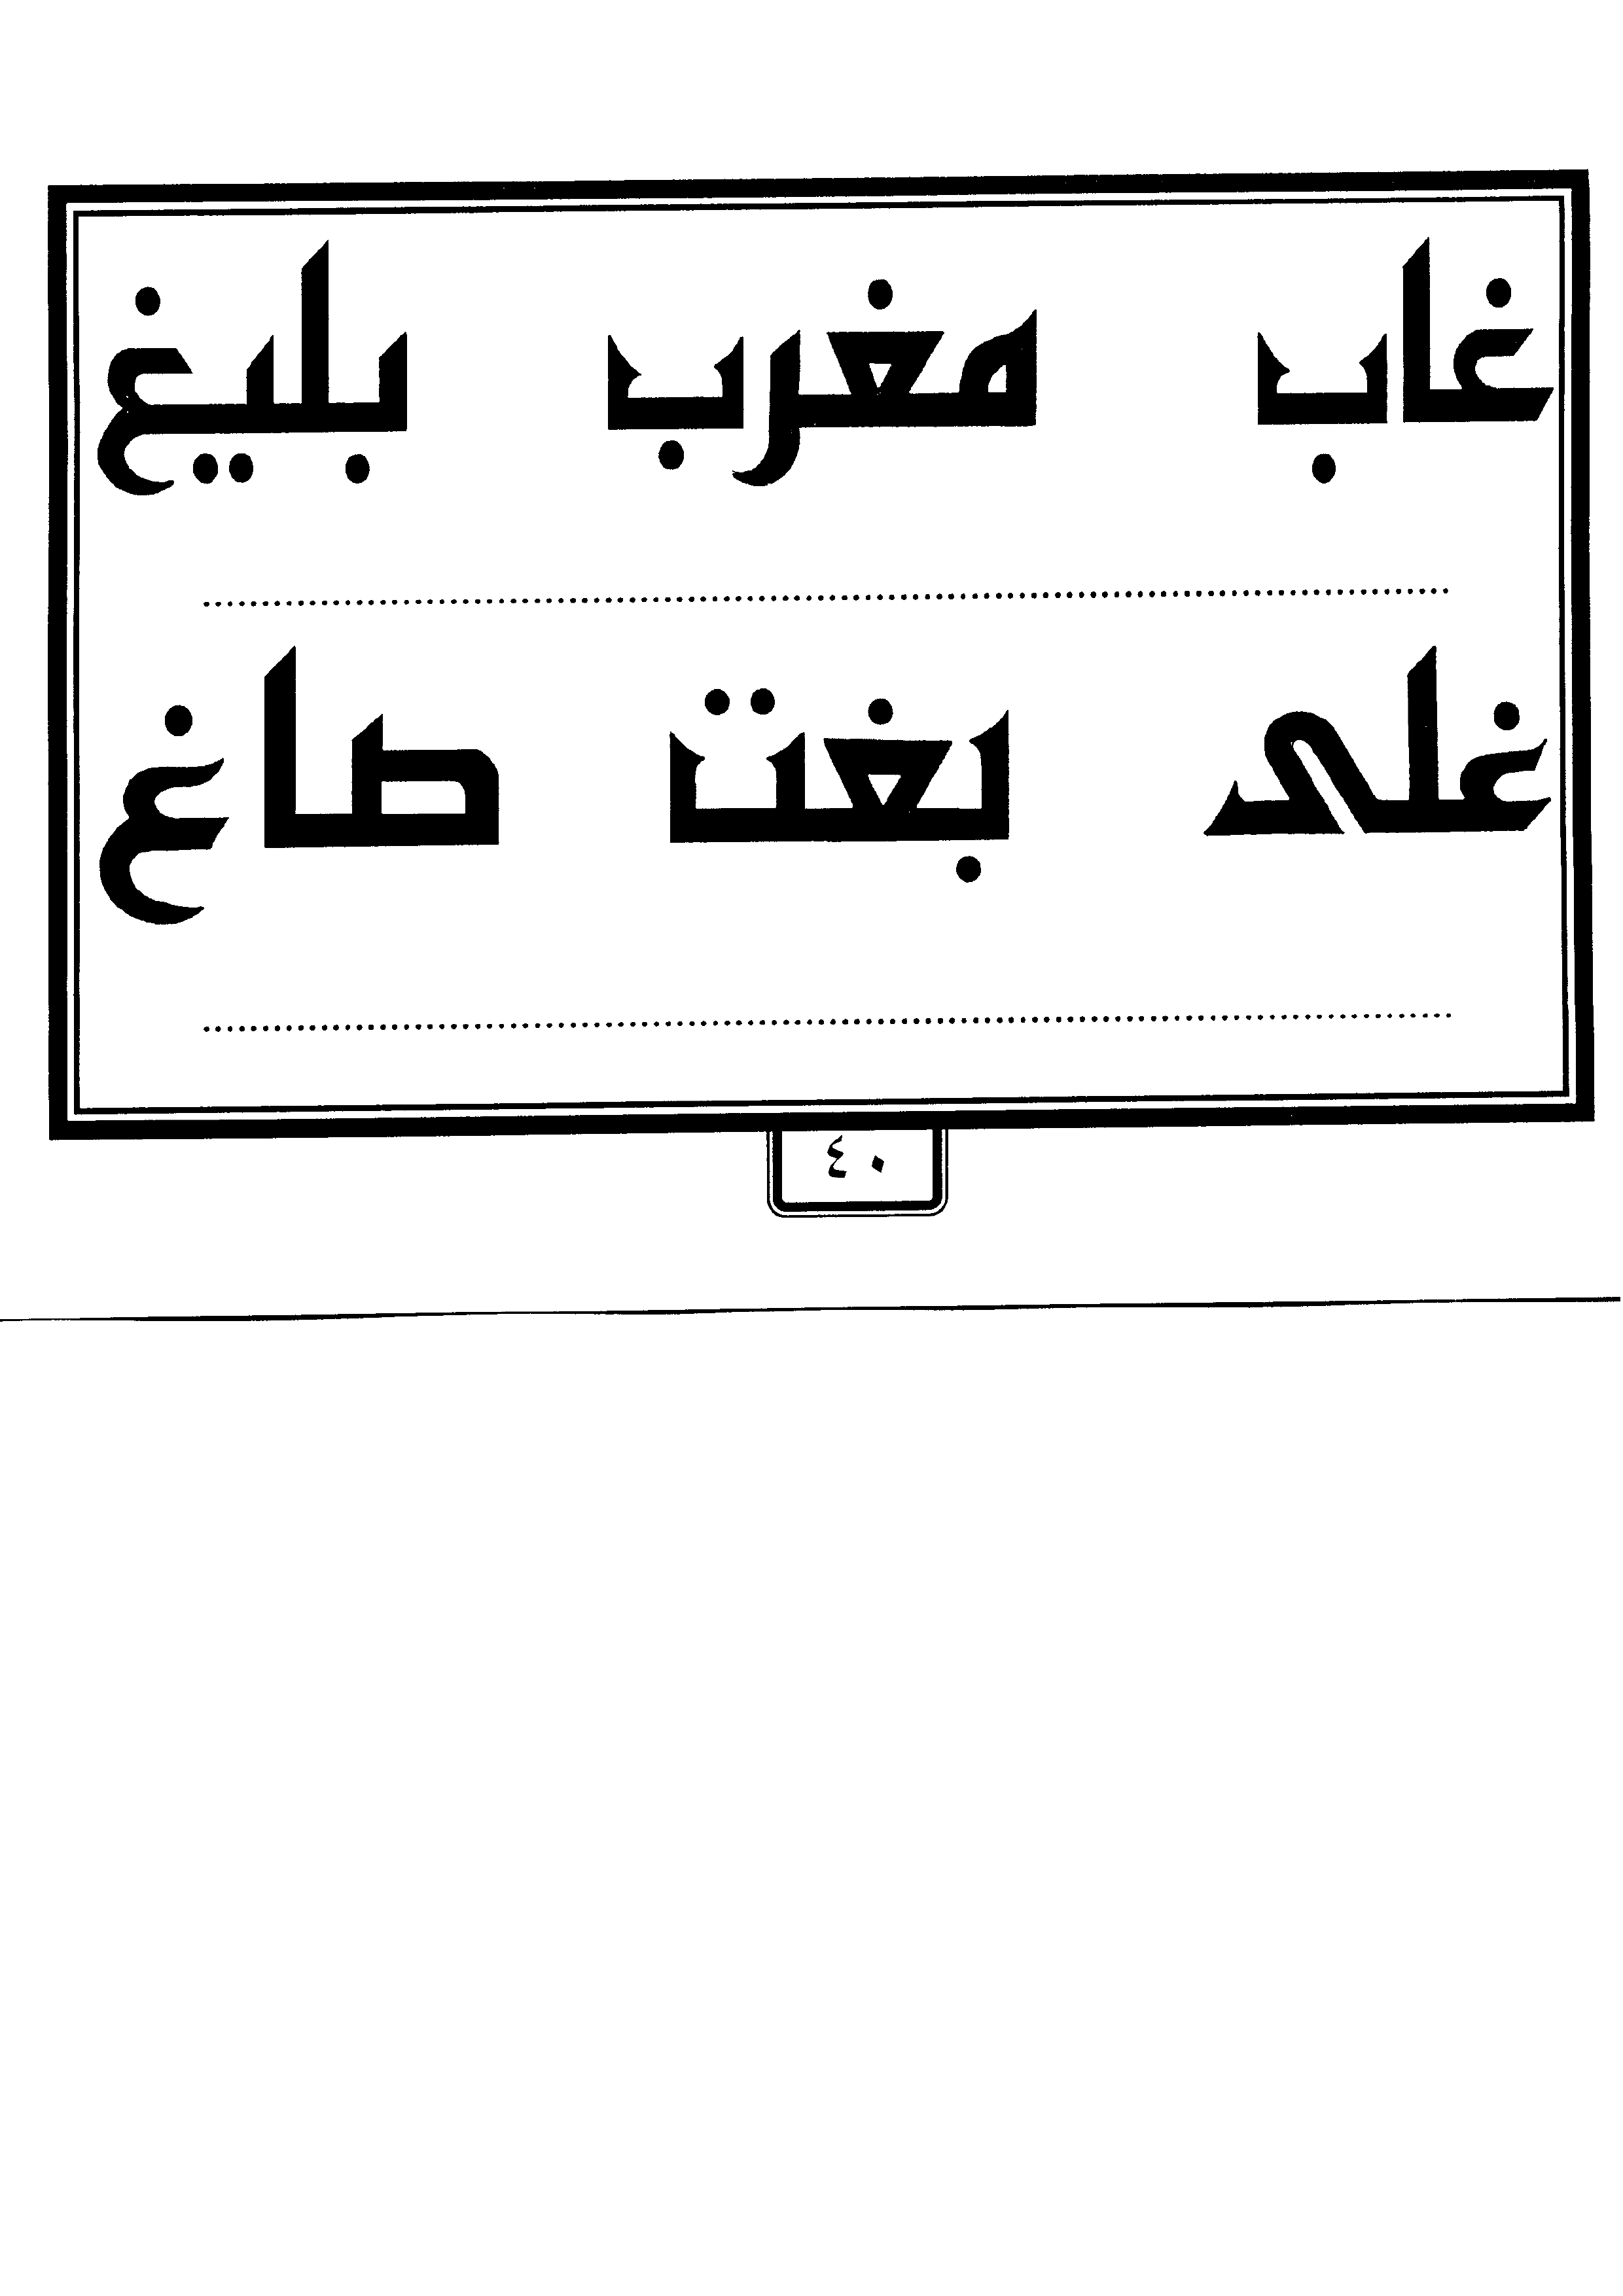 غاب مغرب بليغ
غلى بغت صاغ
٤٠